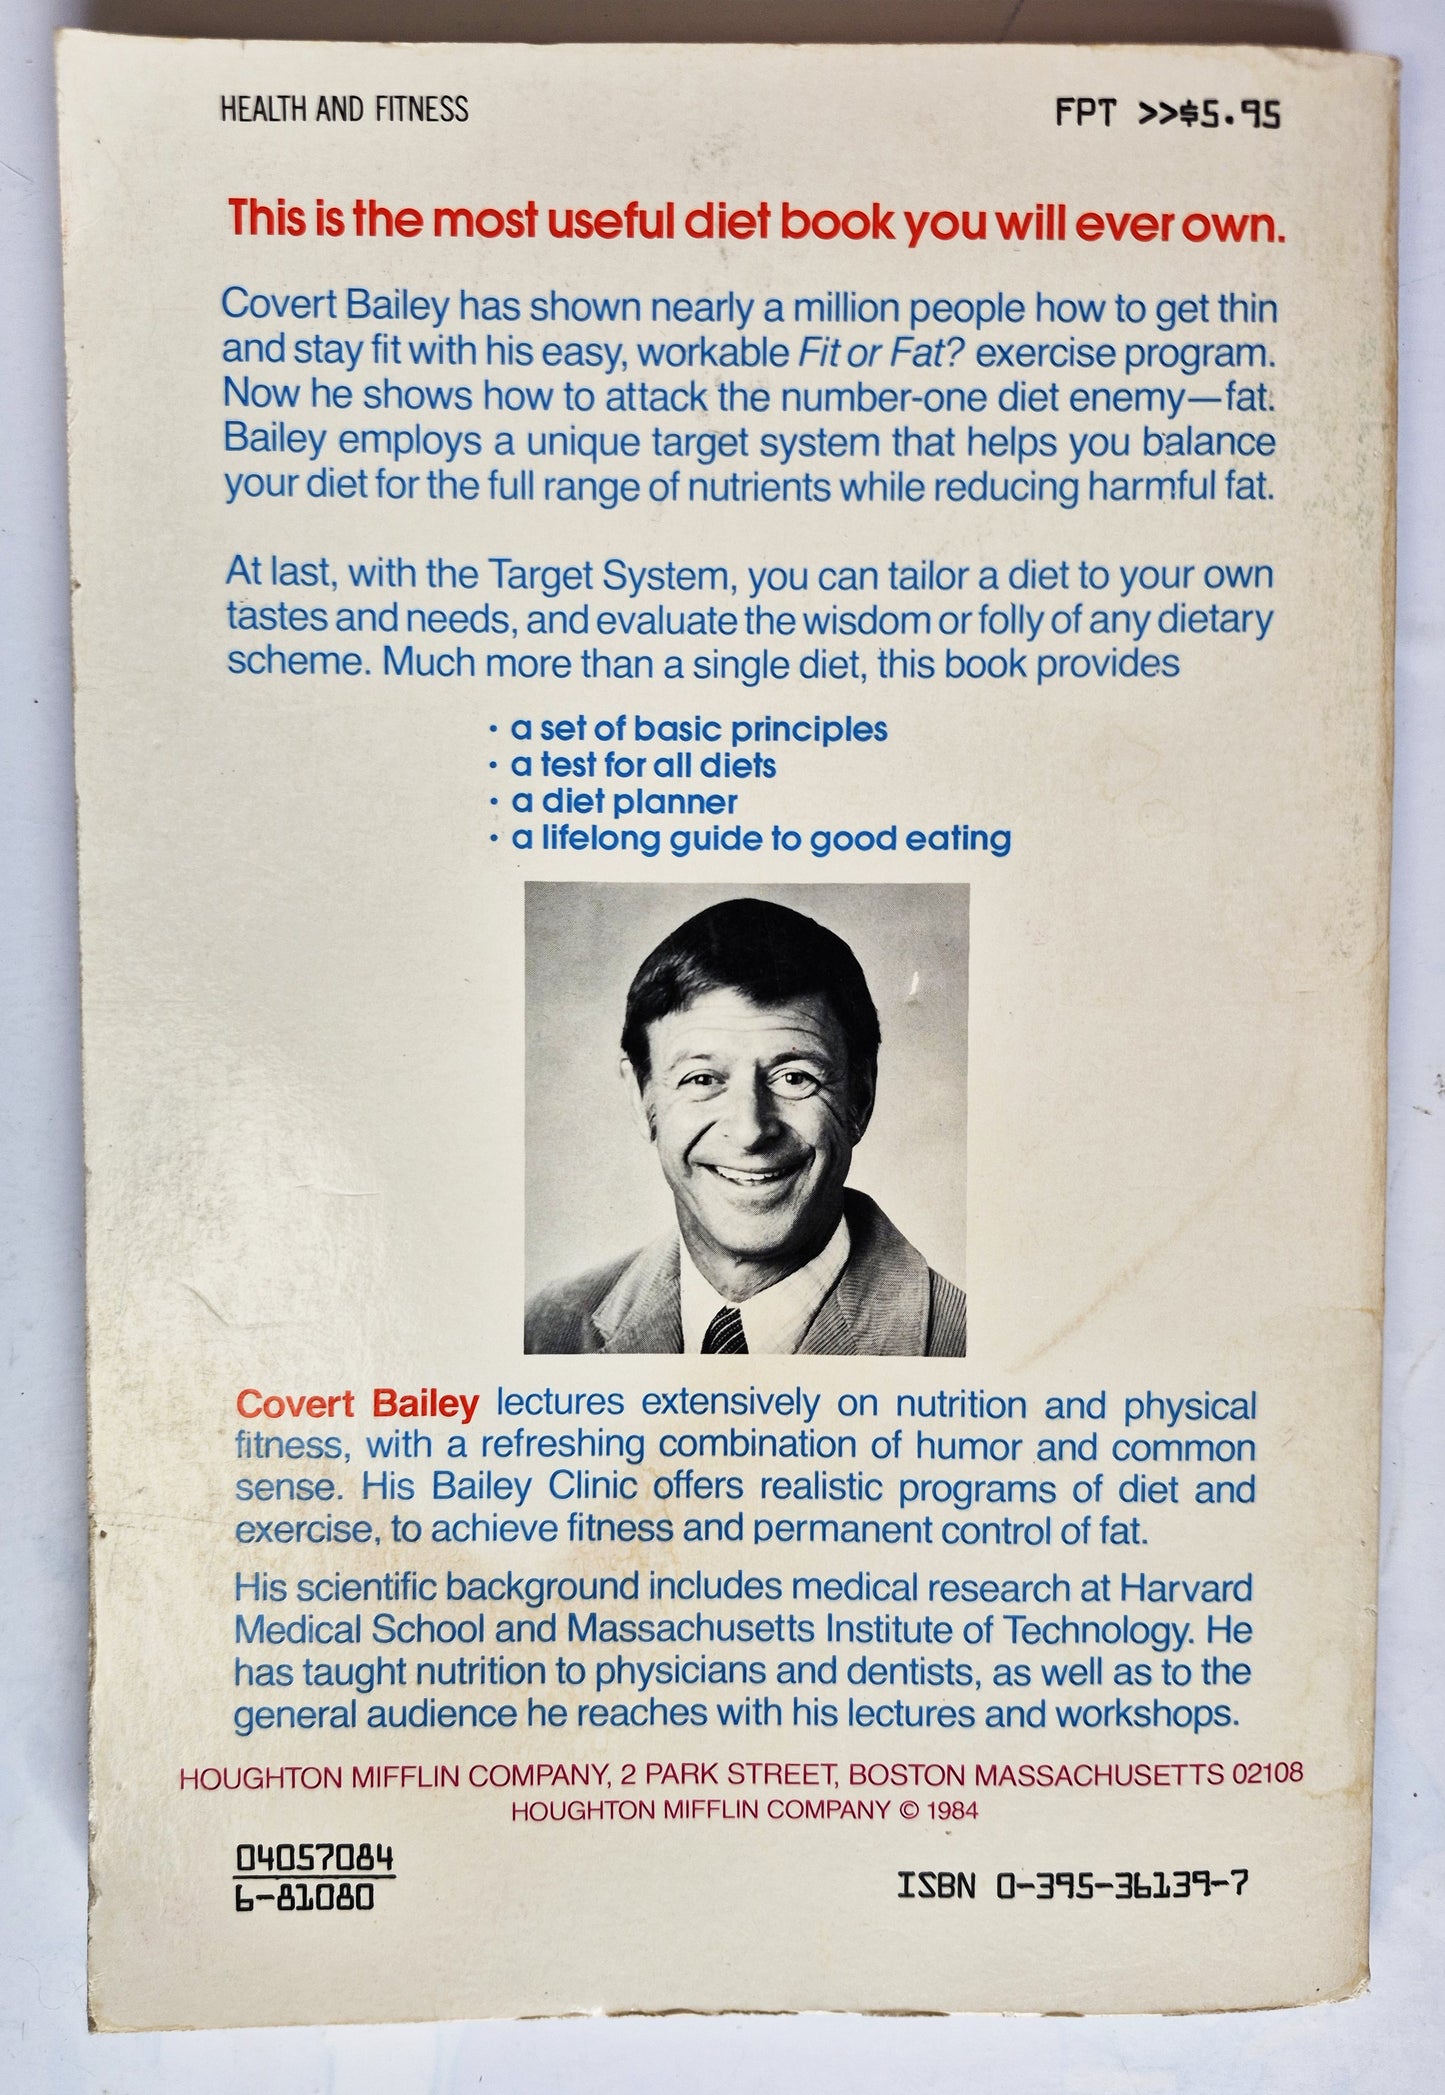 HEALTH AND FITNESS
FPT >>$5.95
This is the most useful diet book you will ever own.
Covert Bailey has shown nearly a million people how to get thin
and stay fit with his easy, workable Fit or Fat? exercise program.
Now he shows how to attack the number-one diet enemy—fat.
Bailey employs a unique target system that helps you balance
your diet for the full range of nutrients while reducing harmful fat.
At last, with the Target System, you can tailor a diet to your own
tastes and needs, and evaluate the wisdom or folly of any dietary
scheme. Much more than a single diet, this book provides
· a set of basic principles
· a test for all diets
· a diet planner
· a lifelong guide to good eating
Covert Bailey lectures extensively on nutrition and physical
fitness, with a refreshing combination of humor and common
sense. His Bailey Clinic offers realistic programs of diet and
exercise, to achieve fitness and permanent control of fat.
His scientific background includes medical research at Harvard
Medical School and Massachusetts Institute of Technology. He
has taught nutrition to physicians and dentists, as well as to the
general audience he reaches with his lectures and workshops.
HOUGHTON MIFFLIN COMPANY, 2 PARK STREET, BOSTON MASSACHUSETTS 02108
HOUGHTON MIFFLIN COMPANY © 1984
04057084
6-81080
ISBN 0-395-36139-7